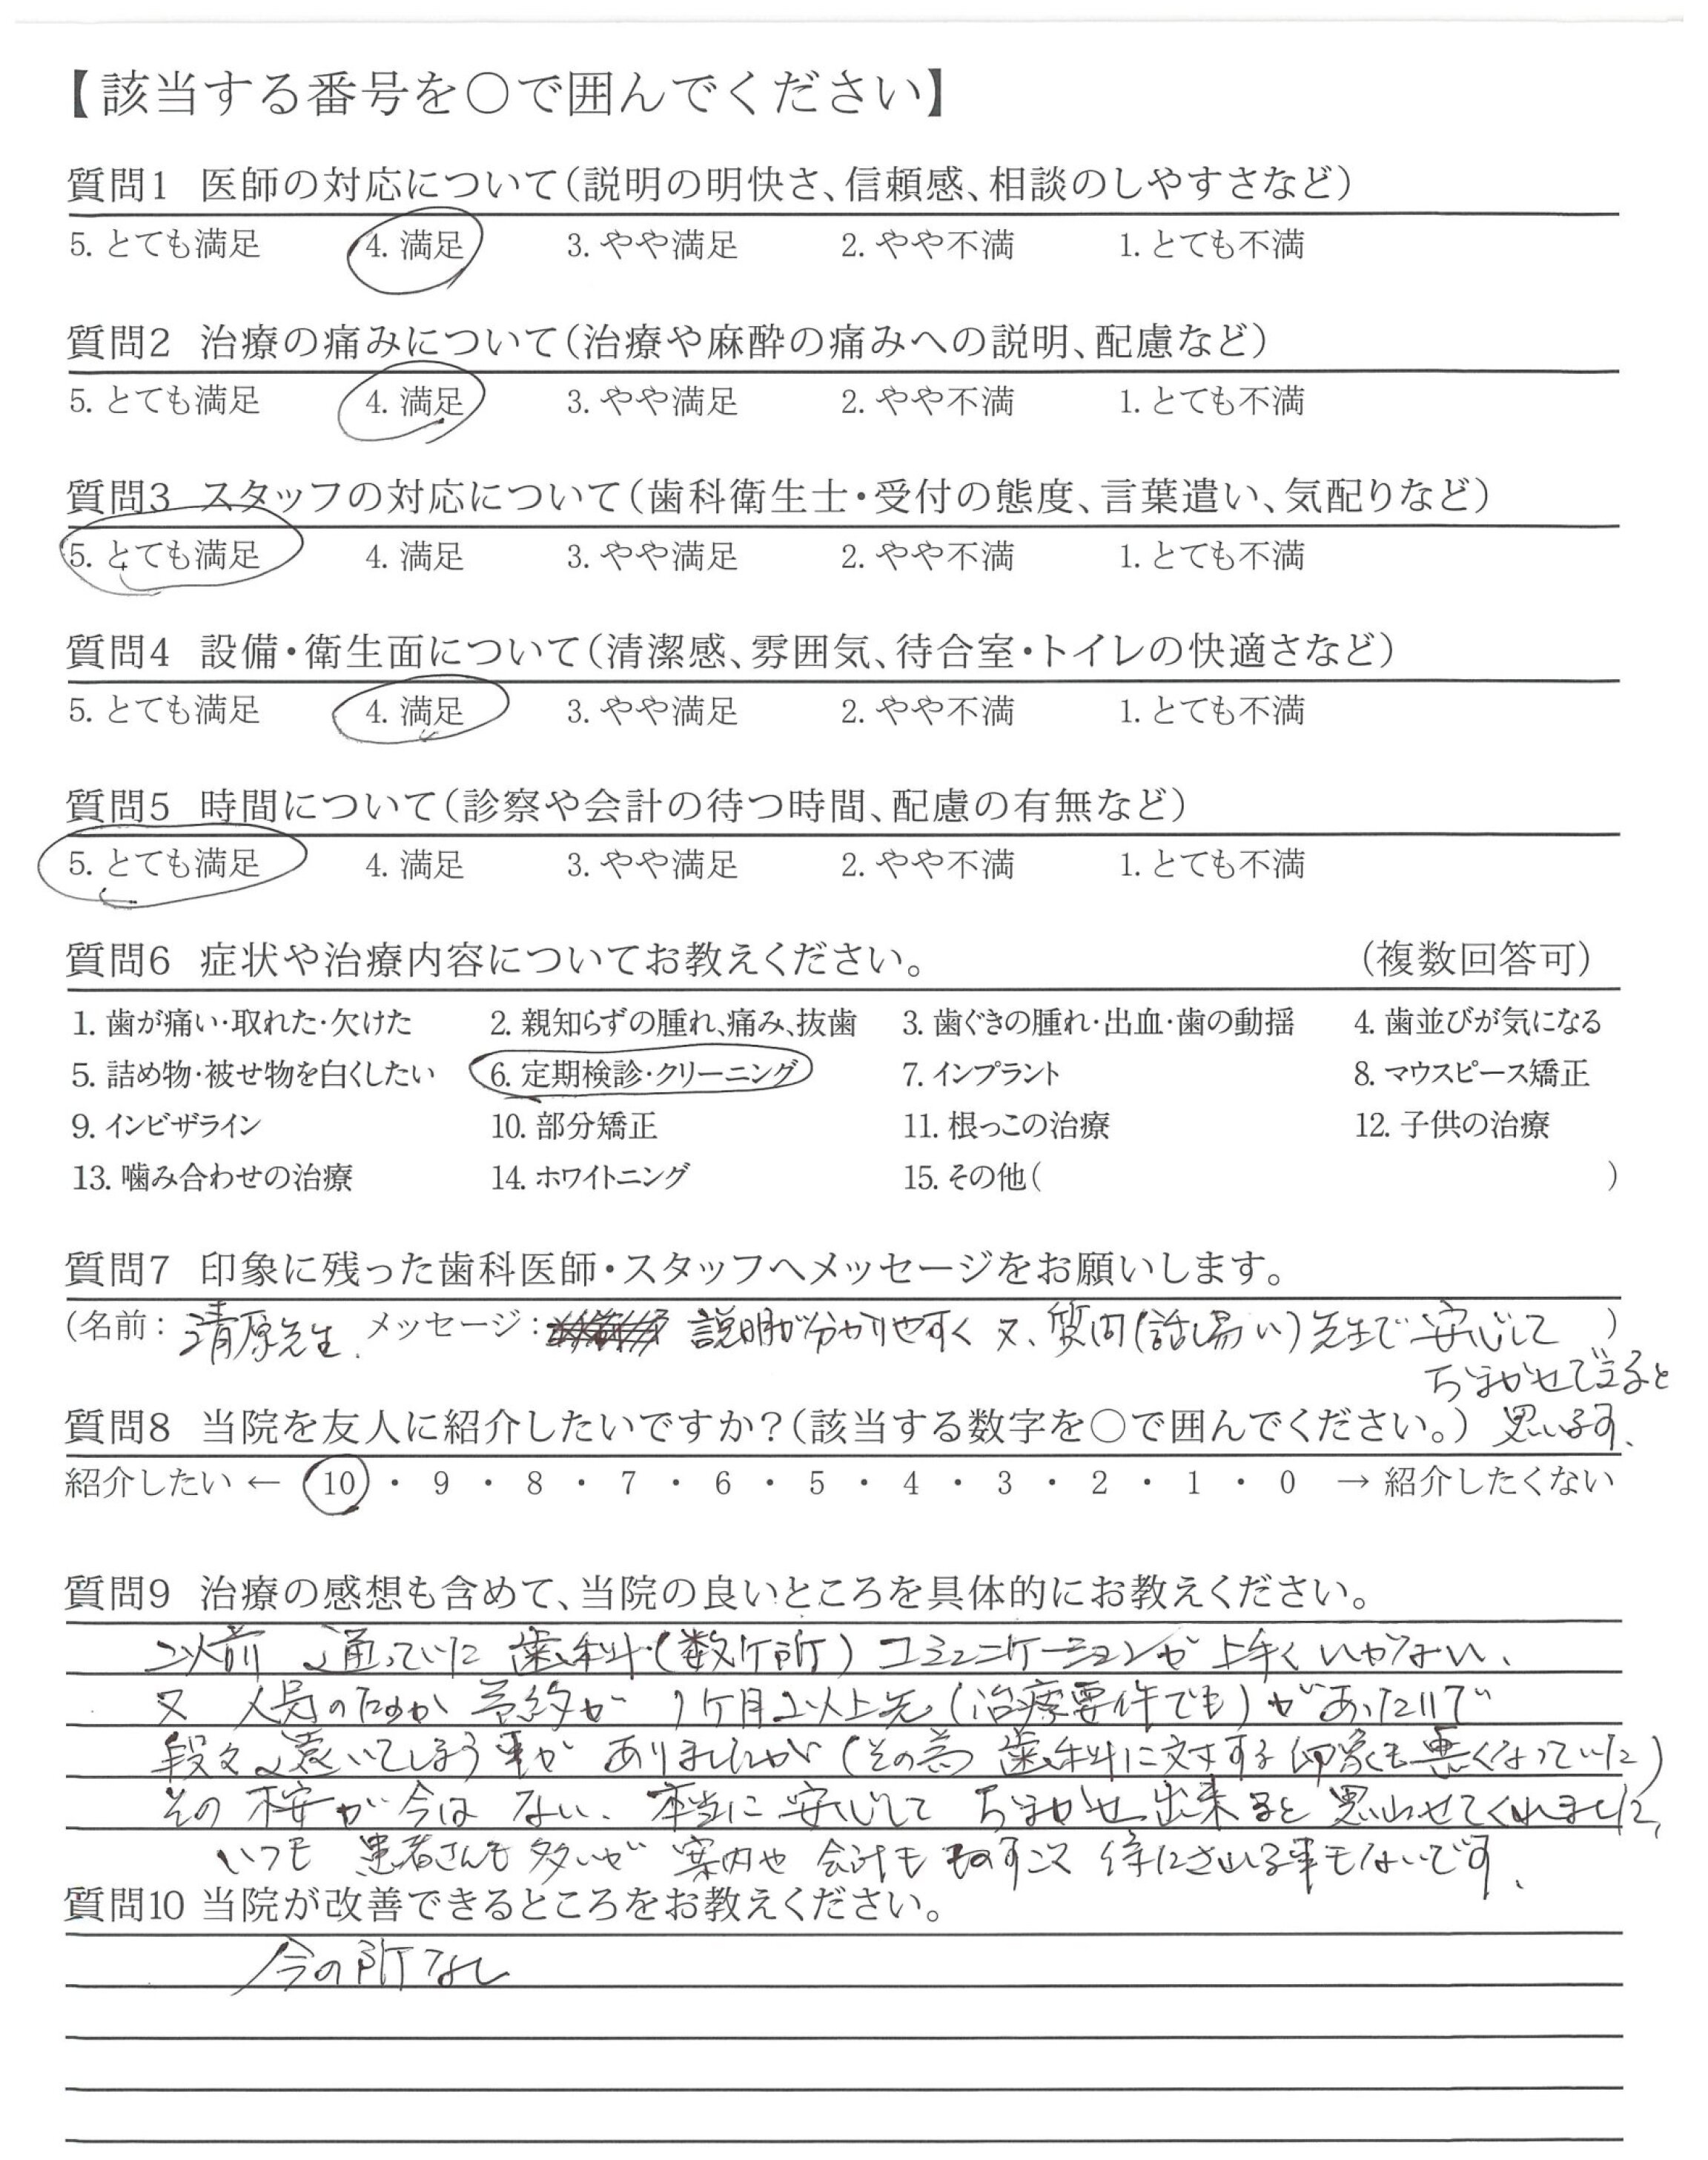 【該当する番号を○で囲んでください】
質問1 医師の対応について(説明の明快さ、信頼感、相談のしやすさなど)
5. とても満足 4. 満足 3. やや満足 2. やや不満 1. とても不満
質問2 治療の痛みについて(治療や麻酔の痛みへの説明、配慮など)
5. とても満足 4. 満足 3. やや満足 2. やや不満 1. とても不満
質問3 スタッフの対応について(歯科衛生士・受付の態度、言葉遣い、気配りなど)
5. とても満足 4. 満足 3. やや満足 2. やや不満 1. とても不満
質問4 設備・衛生面について(清潔感、雰囲気、待合室・トイレの快適さなど)
5. とても満足 4. 満足 3. やや満足 2. やや不満 1. とても不満
質問5 時間について(診察や会計の待つ時間、配慮の有無など)
5. とても満足 4. 満足 3. やや満足 2. やや不満 1. とても不満
質問6 症状や治療内容についてお教えください。 (複数回答可)
1. 歯が痛い・取れた・欠けた 2. 親知らずの腫れ、痛み、抜歯 3. 歯ぐきの腫れ・出血・歯の動揺 4. 歯並びが気になる
5. 詰め物・被せ物を白くしたい 6. 定期検診・クリーニング 7. インプラント 8. マウスピース矯正
9. インビザライン 10. 部分矯正 11. 根っこの治療 12. 子供の治療
13. 噛み合わせの治療 14. ホワイトニング 15. その他( )
質問7 印象に残った歯科医師・スタッフへメッセージをお願いします。
(名前: 清原先生. メッセージ: 説明が分かりやすく 又、質問(話し易い)先生で 安心して )
おまかせできると
質問8 当院を友人に紹介したいですか?(該当する数字を○で囲んでください。) 思います、
紹介したい ← 10 ・ 9 ・ 8 ・ 7 ・ 6 ・ 5 ・ 4 ・ 3 ・ 2 ・ 1 ・ 0 → 紹介したくない
質問9 治療の感想も含めて、当院の良いところを具体的にお教えください。
以前 通っていた 歯科(数ヶ所) コミュニケーションが 上手く いかない、
又 人員のためか 予約が 1ヶ月以上先(治療要件でも)が あったりで
段々 遠いてしまう事が ありましたが (その為 歯科に対する 印象も 悪くなっていた)
その 様が 今は ない、 本当に 安心して おまかせ 出来ると 思わせてくれました、
いつも 患者さんも 多いが 案内や 会計も 待たされる事もないです、
質問10 当院が改善できるところをお教えください。
今の所なし